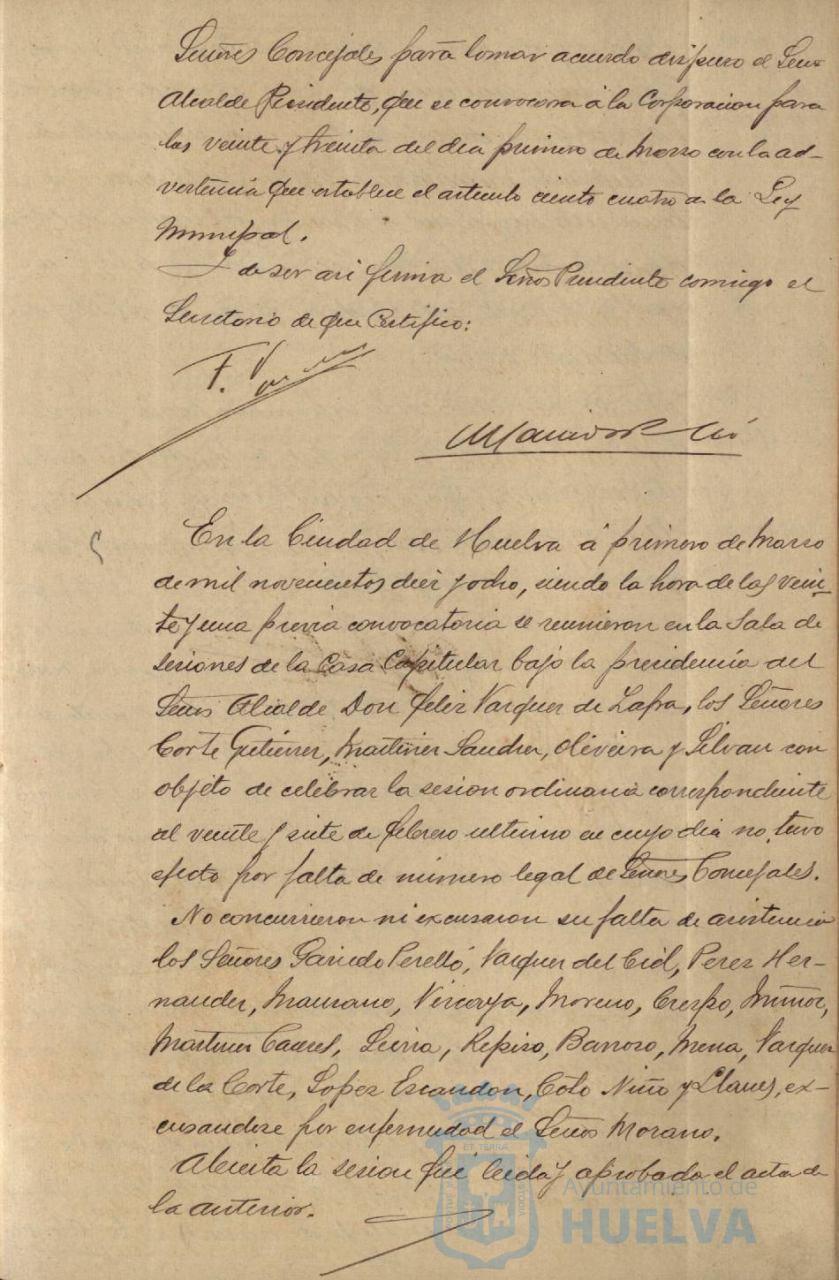 Señores Concejales para tomar acuerdo dispuso el Señor
Alcalde Presidente, que se convocara á la Corporacion para
las veinte y treinta del dia primero de Marzo con la ad-
vertencia que establece el articulo ciento cuatro de la Ley
Municipal.
Y de ser asi firma el Señor Presidente conmigo el
Secretario de que Certifico:
F. V
En la Ciudad de Huelva á primero de Marzo
de mil novecientos diez y ocho, siendo la hora de las vein-
te y una previa convocatoria se reunieron en la Sala de
sesiones de la Casa Capitular bajo la presidencia del
Señor Alcalde Don Felix Vazquez de Zafra, los Señores
Corte Gutierrez, Martinez Sanchez, Oliveira y Silvan con
objeto de celebrar la sesion ordinaria correspondiente
al veinte y siete de febrero ultimo en cuyo dia no tuvo
efecto por falta de numero legal de Señores Concejales.
No concurrieron ni excusaron su falta de asistencia
los Señores Garrido Perelló, Vazquez del Cid, Perez Her-
nandez, Manzano, Vizcaya, Moreno, Crespo, Muñoz,
Martinez Cadres, Seirra, Repiso, Barroso, Mena, Vazquez
de la Corte, Lopez Escandon, Coto Niño y Llanes, ex-
cusandose por enfermedad el Señor Morano.
Abierta la sesion fué leida y aprobada el acta de
la anterior.
Ayuntamiento de
HUELVA